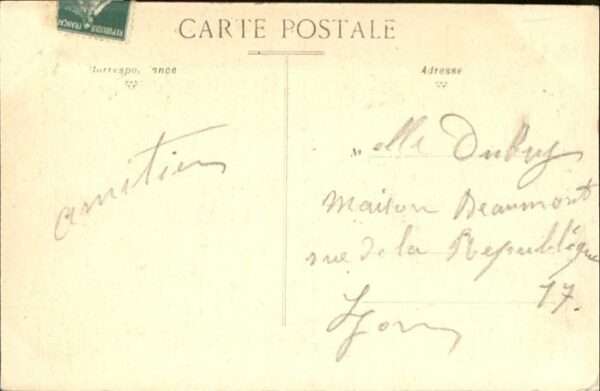 REPUBLIQUE FRANÇAI
CARTE POSTALE
Correspondance
Adresse
amitiés
Melle Dubuy
Maison Beaumont
rue de la République
17.
Lyon